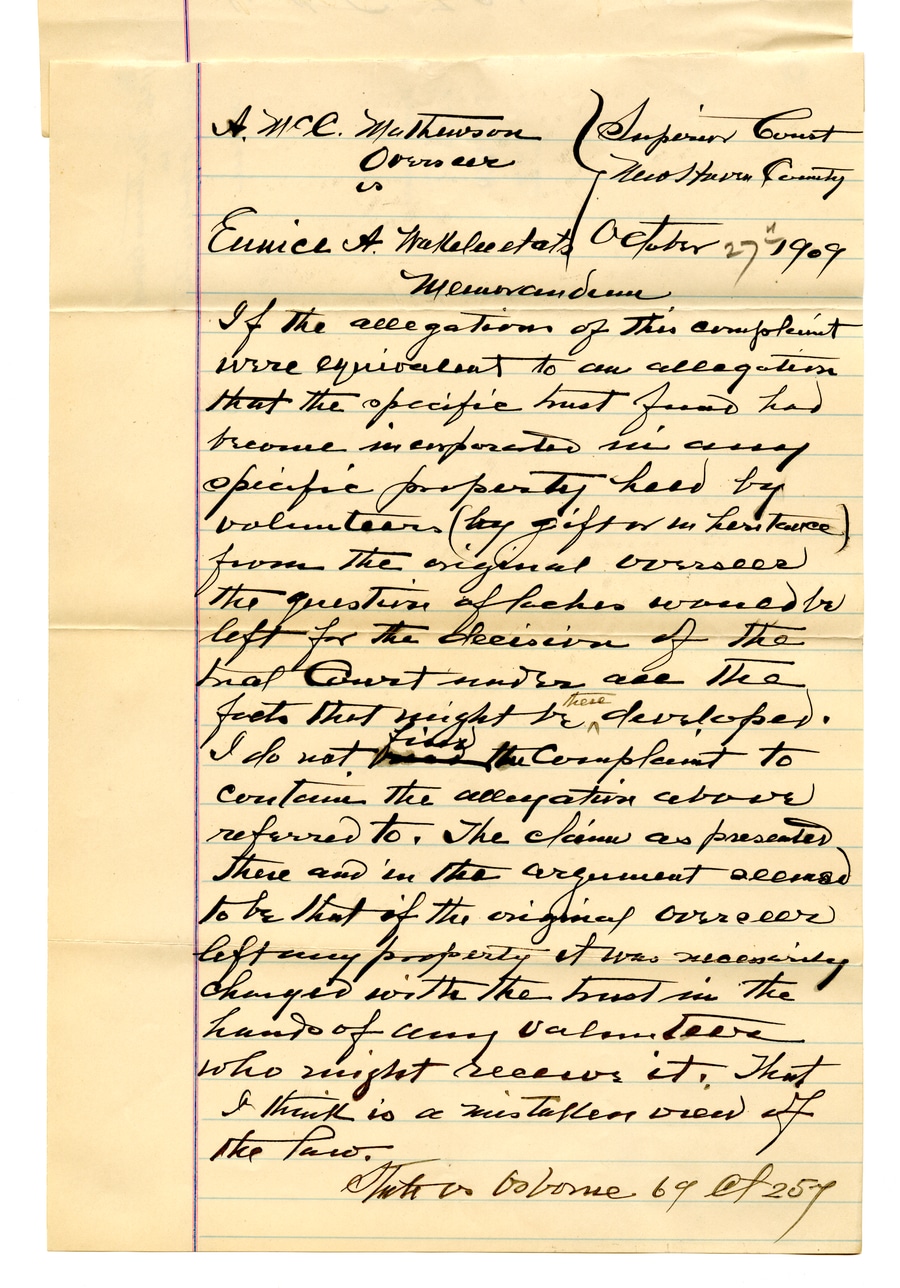 A. McC. Mathewson
Overseer
vs
Eunice A. Wakelee et als
Superior Court
New Haven County
October 27th 1909
Memorandum
If the allegations of this complaint
were equivalent to an allegation
that the specific trust fund had
become incorporated in any
specific property held by
volunteers (by gift or inheritance)
from the original overseer
the question of laches would be
left for the decision of the
trial Court under all the
facts that might be there developed.
I do not find the Complaint to
contain the allegation above
referred to. The claim as presented
there and in the argument seemed
to be that if the original overseer
left any property it was necessarily
charged with the trust in the
hands of any volunteers
who might receive it. That
I think is a mistaken view of
the law.
State vs Osborne 69 Ct 257